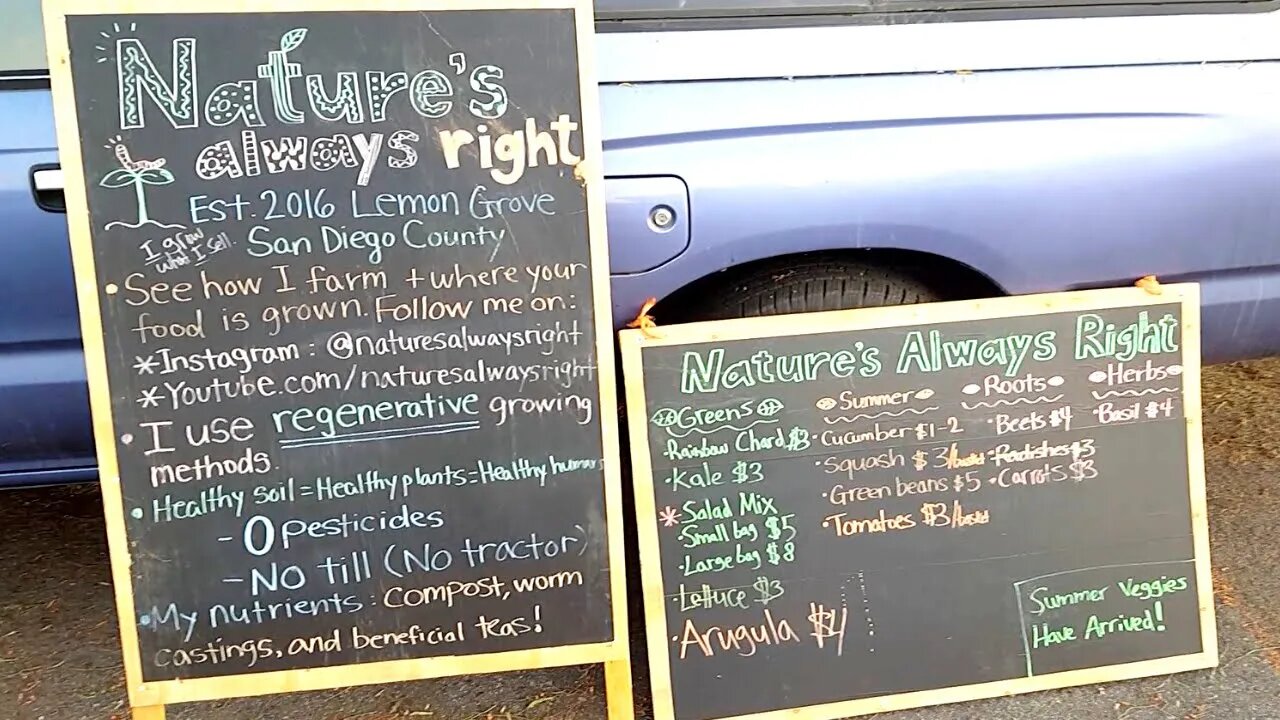 Nature's
always right
Est. 2016 Lemon Grove
I grow
what I sell.
San Diego County
• See how I farm + where your
food is grown. Follow me on:
* Instagram : @naturesalwaysright
* Youtube.com/naturesalwaysright
• I use regenerative growing
methods.
• Healthy soil = Healthy plants = Healthy humans
- 0 pesticides
- No till (No tractor)
• My nutrients : compost, worm
castings, and beneficial teas!
Nature's Always Right
Greens
• Rainbow Chard $3
• Kale $3
* Salad Mix
• Small bag $5
• Large bag $8
• Lettuce $3
• Arugula $4
Summer
• Cucumber $1-2
• Squash $3/basket
• Green beans $5
• Tomatoes $3/basket
Roots
• Beets $4
• Radishes $3
• Carrots $3
Herbs
• Basil $4
Summer Veggies
Have Arrived!